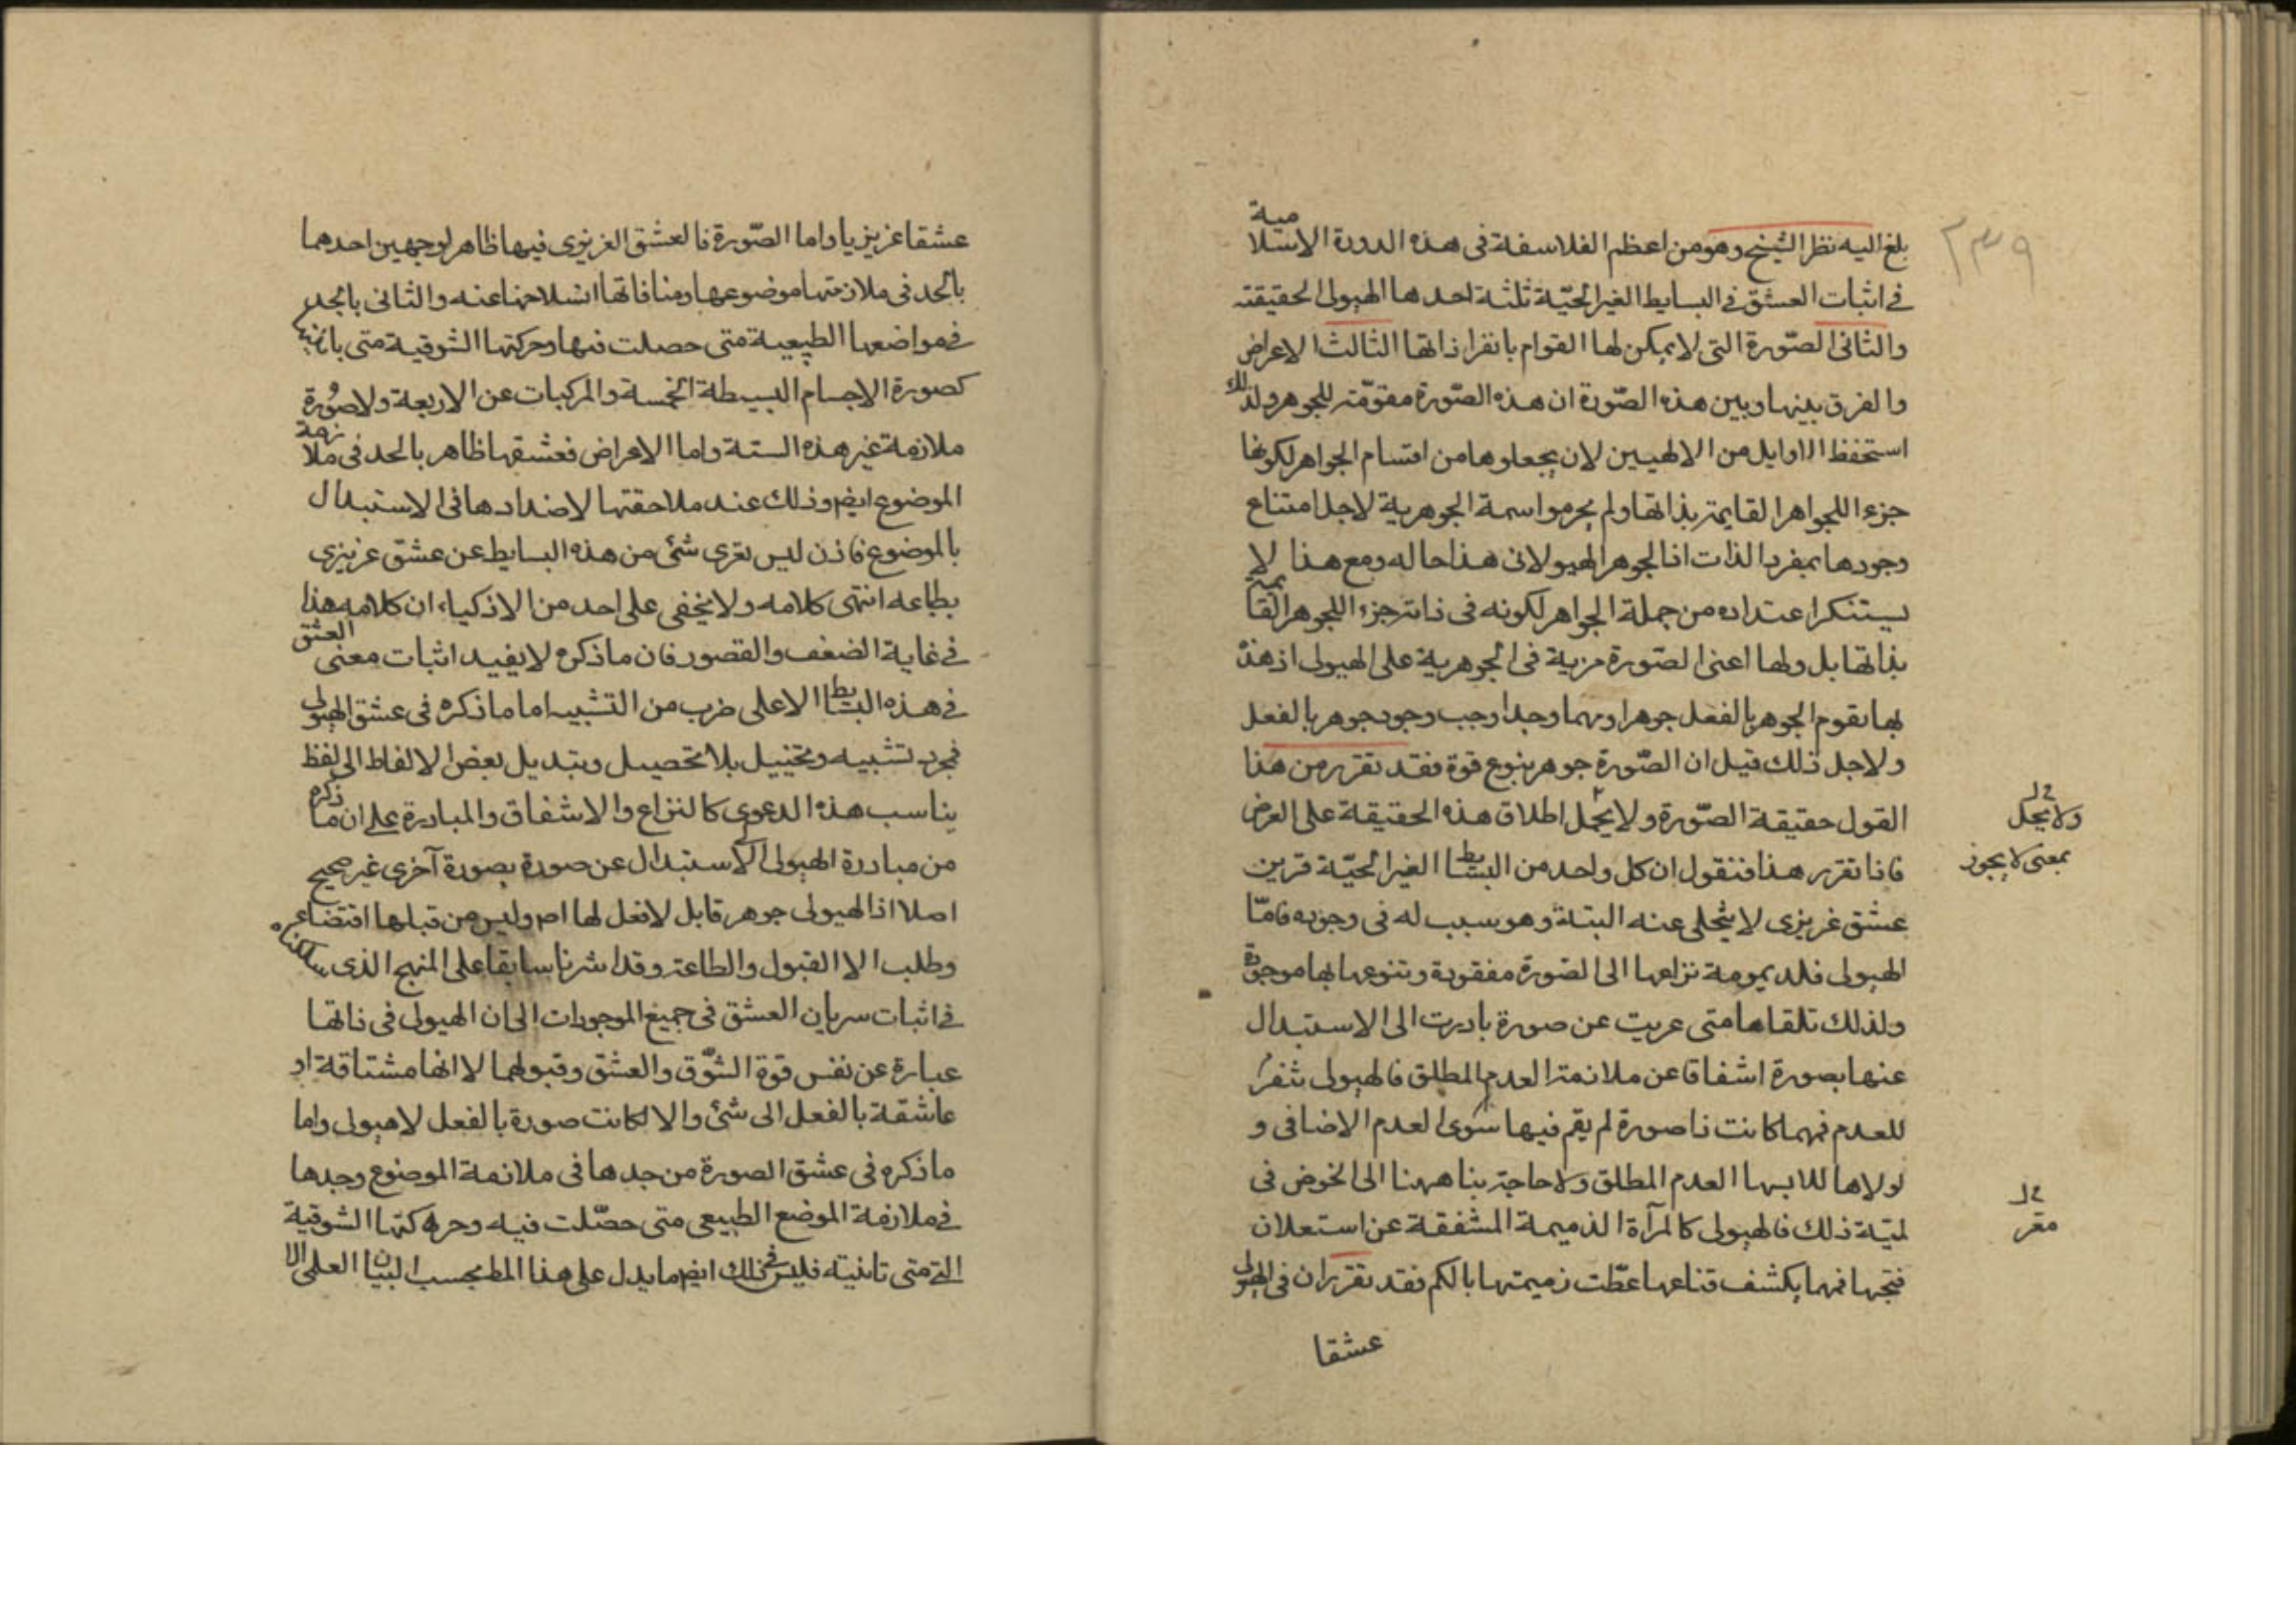 ٢٣٩
بلغ اليه نظر الشيخ وهو من اعظم الفلاسفة فى هذه الدورة الاسلامية
فى اثبات العشق فى البسايط الغير الحيّة ثلثة احدها الهيولى الحقيقة
والثانى الصّورة التى لا يمكن لها القوام بانفراد ذاتها الثالث الاعراض
والفرق بينها وبين هذه الصّورة ان هذه الصّورة مقوّمة للجوهر ولذلك
استحفظ الاوايل من الالهيين لان يجعلوها من اقسام الجواهر لكونها
جزءا للجواهر القايمة بذاتها ولم يحرموا سمة الجوهرية لاجل امتناع
وجودها بمفرد الذات اذ الجوهر الهيولانى هذا حاله ومع هذا لا
يستنكر اعتداده من جملة الجواهر لكونه فى ذاته جزءا للجوهر القايمة
بذاتها بل ولها اعنى الصّورة مزية فى الجوهرية على الهيولى اذ هذه
بها يقوم الجوهر بالفعل جوهرا ومهما وجد اوجب وجود جوهر بالفعل
ولاجل ذلك قيل ان الصّورة جوهر بنوع قوة فقد تقرر من هذا
القول حقيقة الصّورة ولا يحمل اطلاق هذه الحقيقة على العرض
ولا يحل
بمعنى لا يجوز
فاذا تقرر هذا فنقول ان كل واحد من البسايط الغير الحيّة قرين
عشق غريزى لا يتخلى عنه البتة وهو سبب له فى وجوده فامّا
الهيولى فلديمومة نزاعها الى الصّورة مفقودة وتنوعها بها موجودة
ولذلك تلقاها متى عريت عن صورة بادرت الى الاستبدال
عنها بصورة اشفاقا عن ملازمة العدم المطلق فالهيولى
للعدم فمهما كانت ذا صورة لم يقم فيها سوى العدم الاضافى و
لولاها للابسها العدم المطلق ولا حاجة بنا ههنا الى الخوض فى
لميّة ذلك فالهيولى كالمرآة الذميمة المشفقة عن استعلان
قبحها فمهما يكشف قناعها غطّت ذميمتها بالكم فقد تقرر ان فى الهيولى
عشقا
عشقا غريزيا واما الصّورة فالعشق الغريزى فيها ظاهر لوجهين احدهما
بالجد فى ملازمتها موضوعها ومنافاتها انسلاخها عنه والثانى بالجد
فى مواضعها الطبيعية متى حصلت فيها وحركتها الشوقية متى
كصورة الاجسام البسيطة الخمسة والمركبات عن الاربعة ولا صورة
ملازمة غير هذه الستة واما الاعراض فعشقها ظاهر بالجد فى ملازمة
الموضوع ايضم وذلك عند ملاحقتها لاضدادها فى الاستبدال
بالموضوع فاذن ليس تعرى شئ من هذه البسايط عن عشق غريزى
بطباعه انتهى كلامه ولا يخفى على احد من الاذكياء ان كلامه هذا
فى غاية الضعف والقصور فان ما ذكره لا يفيد اثبات معنى العشق
فى هذه البسايط الا على ضرب من التشبيه اما ما ذكره فى عشق الهيولى
فمجرد تشبيه وتخييل بلا تحصيل وتبديل بعض الالفاظ الى لفظ
يناسب هذه الدعوى كالنزاع والاشفاق والمبادرة على ان ما ذكره
من مبادرة الهيولى الاستبدال عن صورة بصورة آخرى غير صحيح
اصلا اذ الهيولى جوهر قابل لا فعل لها اصم وليس من قبلها اقتضاء
وطلب الا القبول والطاعة وقد اشرنا سابقا على المنهج الذى سلكناه
فى اثبات سريان العشق فى جميع الموجودات الى ان الهيولى فى ذاتها
عبارة عن نفس قوة الشّوق والعشق وقبولهما لا انها مشتاقة او
عاشقة بالفعل الى شئ والا لكانت صورة بالفعل لا هيولى واما
ما ذكره فى عشق الصورة من جدها فى ملازمة الموضوع وجدها
فى ملازمة الموضع الطبيعى متى حصّلت فيه وحركتها الشوقية
اليه متى تانيته فليس فى ذلك ايضم ما يدل على هذا المط بحسب البيان العلمى الا